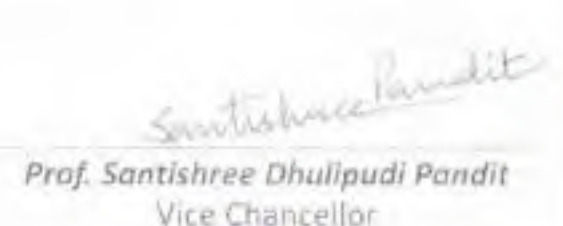 Santishree Pandit
Prof. Santishree Dhulipudi Pandit
Vice Chancellor